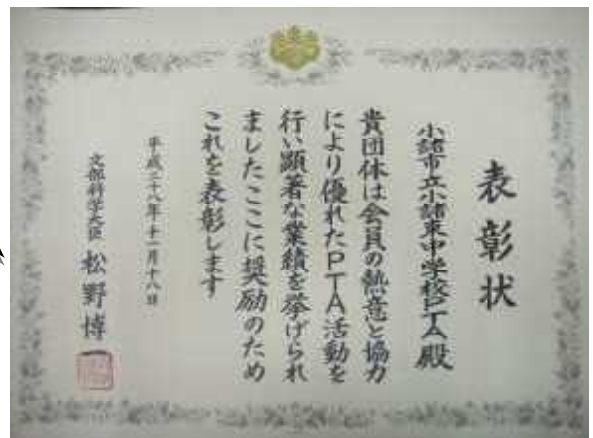 表彰状
小諸市立小諸東中学校PTA殿
貴団体は会員の熱意と協力
により優れたPTA活動を
行い顕著な業績を挙げられ
ましたここに奨励のため
これを表彰します
平成二十八年十一月十八日
文部科学大臣 松野博一